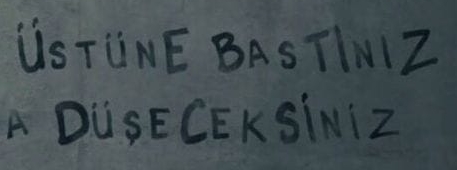 ÜSTÜNE BASTINIZ
A DÜŞECEKSİNİZ